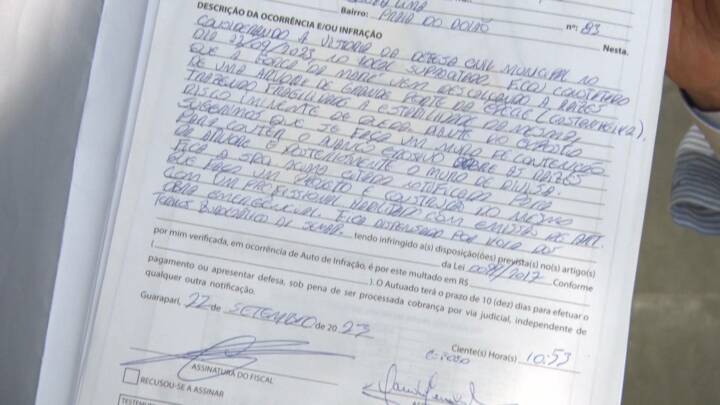 Bairro: PRAIA DO nº: 83
DESCRIÇÃO DA OCORRÊNCIA E/OU INFRAÇÃO Nesta.
CONSIDERANDO A VISTORIA DA DEFESA CIVIL MUNICIPAL NO
DIA /09/2023 NO LOCAL SUPRACITADO. FICOU CONSTATADO
QUE A FORÇA DA MARÉ VEM DESCALÇANDO A RAÍZES
DE UMA ÁRVORE DE GRANDE PORTE DA (CASTANHEIRA).
TRAZENDO FRAGILIDADE A ESTABILIDADE DA MESMA
RISCO IMINENTE DE QUEDA. DIANTE DO EXPOSTO
SUGERIMOS QUE SE FAÇA UM MURO DE CONTENÇÃO
PARA CONTER O AVANÇO EROSIVO SOBRE AS RAÍZES
DA ÁRVORE E POSTERIORMENTE O MURO DE DIVISA.
FICA A SRA ACIMA CITADA NOTIFICADA PARA
QUE FAÇA UM PROJETO E CONSTRUA NO MESMO
COM UM PROFISSIONAL HABILITADO COM EMISSÃO DE ART.
OBRA EMERGENCIAL. FICA DISPENSADO POR HORA DOS
, tendo infringido a(s) disposição(ões) prevista(s) no(s) artigo(s)
da Lei 0090/2017
por mim verificada, em ocorrência de Auto de Infração, é por este multado em R$ Conforme
( ). O Autuado terá o prazo de 10 (dez) dias para efetuar o
pagamento ou apresentar defesa, sob pena de ser processada cobrança por via judicial, independente de
qualquer outra notificação.
Guarapari, 22 de SETEMBRO de 20 23
Cliente(s) Hora(s) 10:53
ASSINATURA DO FISCAL
RECUSOU-SE A ASSINAR